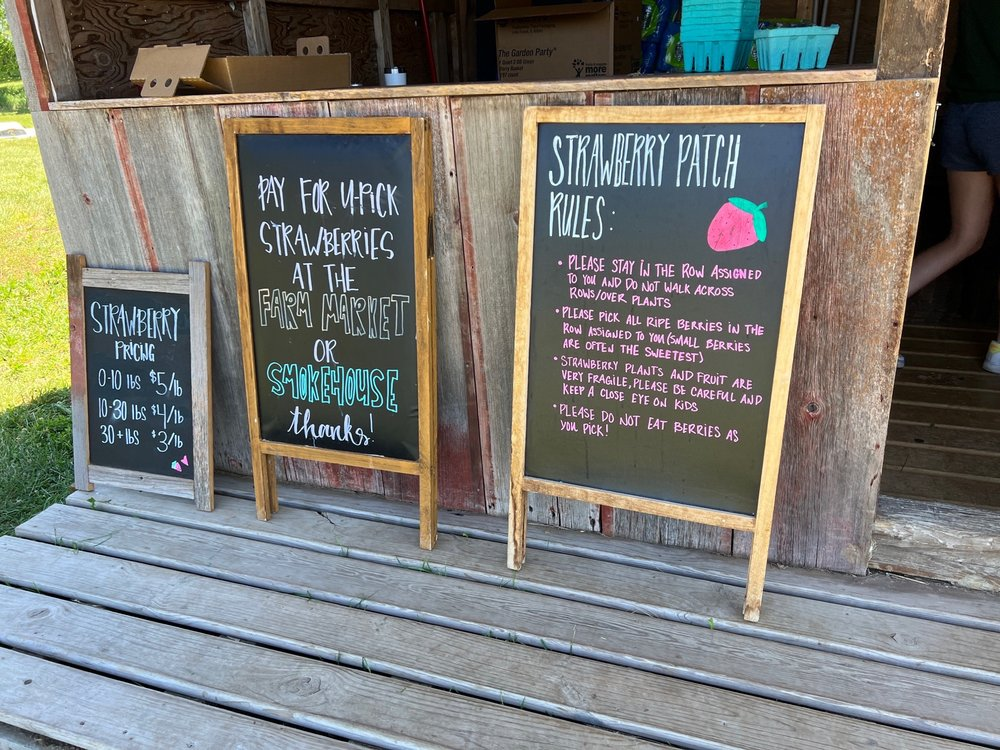 The Garden Party®
more
STRAWBERRY
PRICING
0-10 lbs $5/lb
10-30 lbs $4/lb
30+lbs $3/lb
PAY FOR U-PICK
STRAWBERRIES
AT THE
FARM MARKET
OR
SMOKEHOUSE
thanks!
STRAWBERRY PATCH
RULES:
• PLEASE STAY IN THE ROW ASSIGNED
TO YOU AND DO NOT WALK ACROSS
ROWS/OVER PLANTS
• PLEASE PICK ALL RIPE BERRIES IN THE
ROW ASSIGNED TO YOU (SMALL BERRIES
ARE OFTEN THE SWEETEST)
• STRAWBERRY PLANTS AND FRUIT ARE
VERY FRAGILE, PLEASE BE CAREFUL AND
KEEP A CLOSE EYE ON KIDS
• PLEASE DO NOT EAT BERRIES AS
YOU PICK!